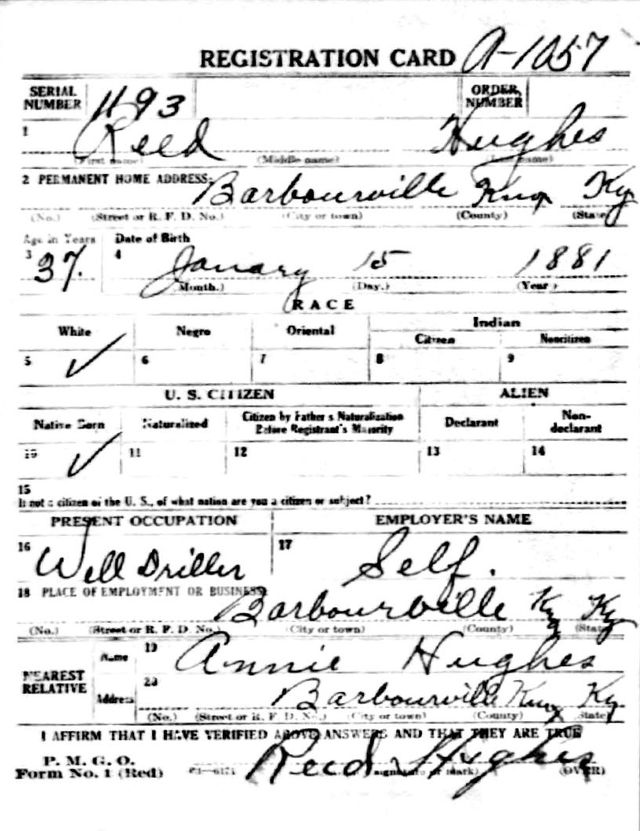 REGISTRATION CARD A-1057
SERIAL NUMBER 1193 ORDER NUMBER
1 Reed Hughes
(First name) (Middle name) (Last name)
2 PERMANENT HOME ADDRESS: Barbourville Knox Ky
(No.) (Street or R. F. D. No.) (City or town) (County) (State)
Age in Years Date of Birth
3 37. 4 Janary 15 1881
(Month.) (Day.) (Year)
RACE
White Negro Oriental Indian
Citizen Noncitizen
5 ✓ 6 7 8 9
U. S. CITIZEN ALIEN
Native Born Naturalized Citizen by Father's Naturalization Before Registrant's Majority Declarant Non-declarant
10 ✓ 11 12 13 14
15
If not a citizen of the U. S., of what nation are you a citizen or subject?
PRESENT OCCUPATION EMPLOYER'S NAME
16 Well Driller 17 Self.
18 PLACE OF EMPLOYMENT OR BUSINESS: Barbourville Ky
(No.) (Street or R. F. D. No.) (City or town) (County) (State)
NEAREST RELATIVE Name 19 Annie Hughes
Address 20 Barbourville Knox Ky
(No.) (Street or R. F. D. No.) (City or town) (County) (State)
I AFFIRM THAT I HAVE VERIFIED ABOVE ANSWERS AND THAT THEY ARE TRUE
P. M. G. O.
Form No. 1 (Red) Reed Hughes
(Registrant's signature or mark) (OVER)